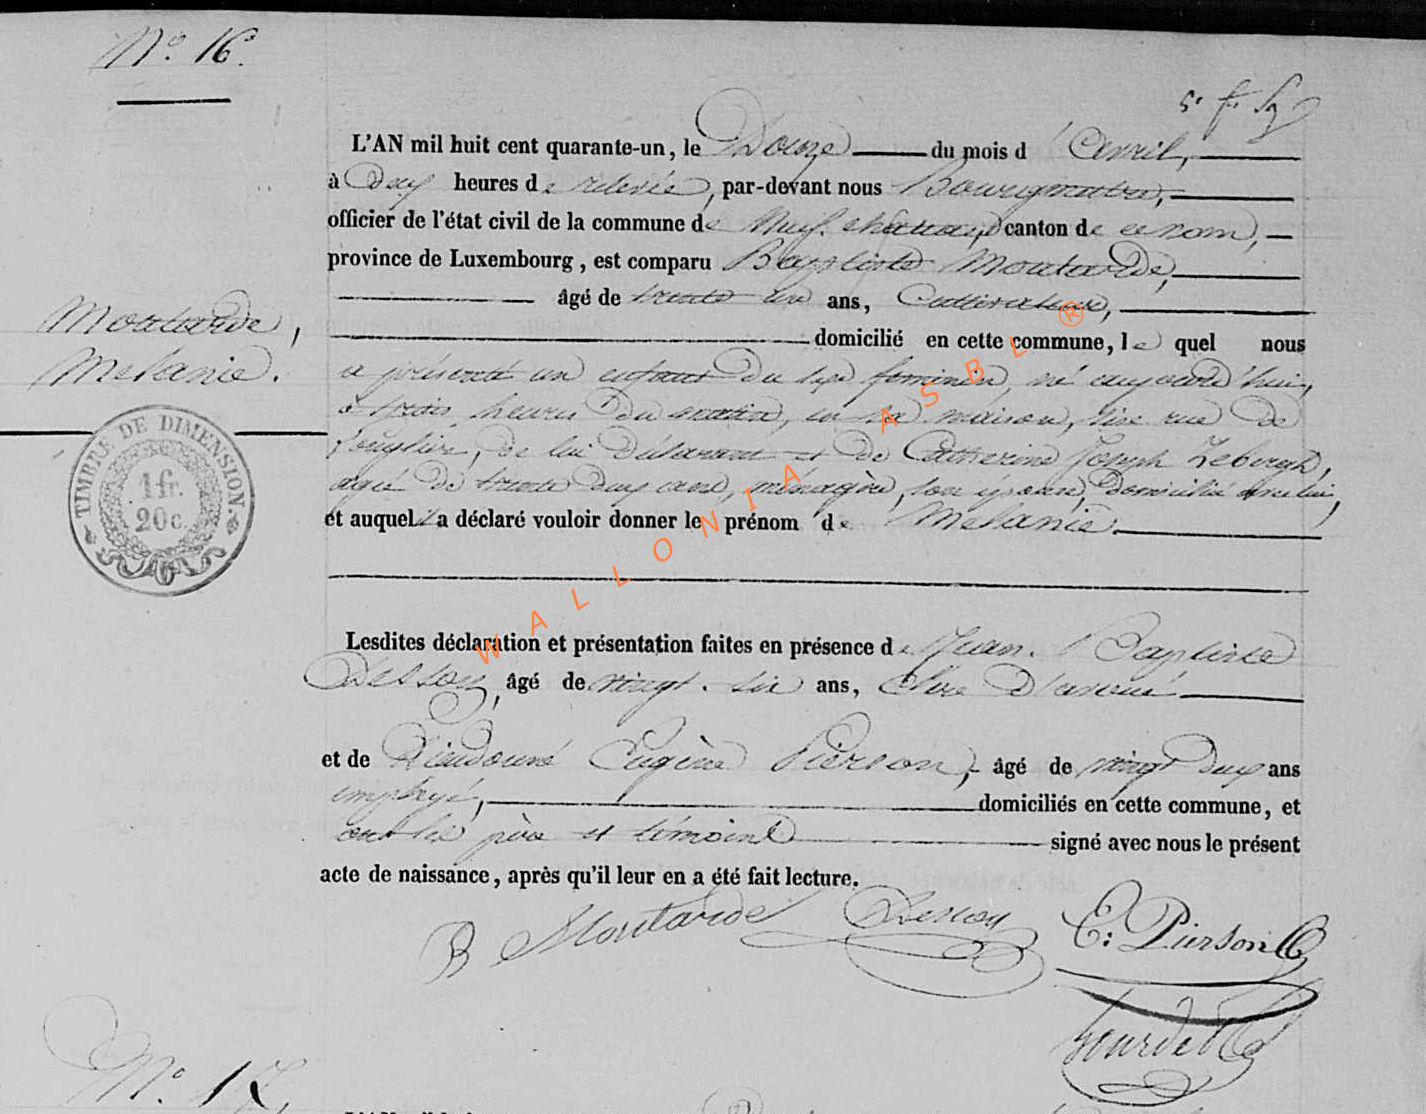 N.° 16.
L'AN mil huit cent quarante-un, le Douze du mois d'avril,
à deux heures de relevée, par-devant nous Bourgmestre,
officier de l'état civil de la commune de Neufchateau, canton de ce nom,
province de Luxembourg, est comparu Baptiste Moutarde,
âgé de trente un ans, Cultivateur,
domicilié en cette commune, le quel nous
Moutarde,
Melanie.
a présenté un enfant du sexe feminin, né aujourd'hui,
à trois heures du matin, en sa maison, sise rue de
de lui déclarant et de Catherine Joseph
agée de trente deux ans, ménagère, son épouse, domicilié avec lui,
et auquel il a déclaré vouloir donner le prénom de Melanie.
TIMBRE DE DIMENSION.
1 fr.
20 c.
Lesdites déclaration et présentation faites en présence de Jean-Baptiste
âgé de vingt-six ans, Clerc d'avoué
et de Dieudonné Eugène Pierson, âgé de vingt deux ans
employé, domiciliés en cette commune, et
ont les père et témoins signé avec nous le présent
acte de naissance, après qu'il leur en a été fait lecture.
B Moutarde E: Pierson
N.° 17.
WALLONIA ASBL ®